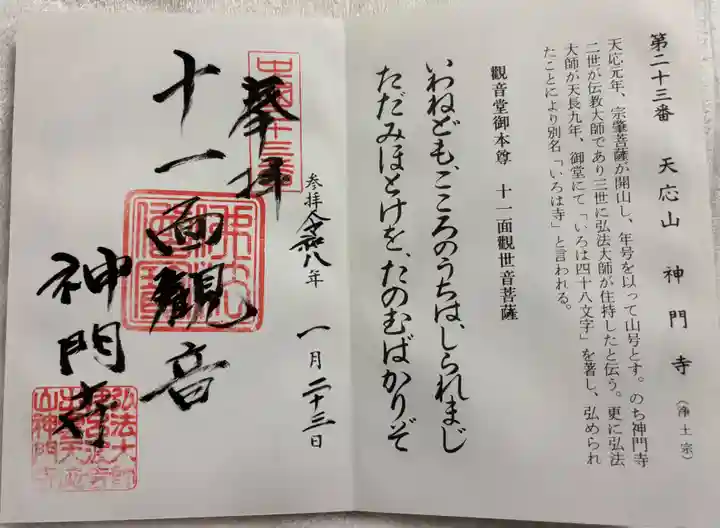 第二十三番　天応山　神門寺（浄土宗）
天応元年、宗肇菩薩が開山し、年号を以って山号とす。のち神門寺
二世が伝教大師であり三世に弘法大師が住持したと伝う。更に弘法
大師が天長九年、御堂にて「いろは四十八文字」を著し、弘められ
たことにより別名「いろは寺」と言われる。
観音堂御本尊　十一面観世音菩薩
いわねども、こころのうちは、しられまじ
ただみほとけを、たのむばかりぞ
参拝令和八年　一月二十三日
奉拝
中国二十三番
十一面觀音
神門寺
弘法大師
山神門寺